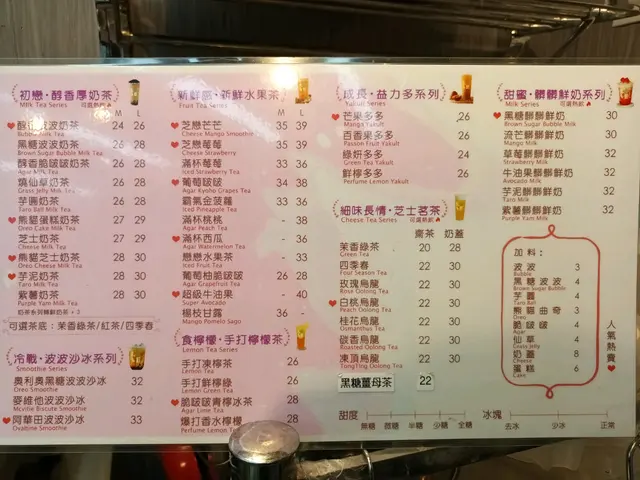 初戀·醇香厚奶茶
Milk Tea Series 可選熱飲
M L
醇香波波奶茶 24 26
Bubble Milk Tea
黑糖波波奶茶 26 28
Brown Sugar Bubble Milk Tea
醇香脆啵啵奶茶 26 28
Agar Milk Tea
燒仙草奶茶 26 28
Grass Jelly Milk Tea
芋圓奶茶 26 28
Taro Ball Milk Tea
熊貓蛋糕奶茶 27 29
Oreo Cake Milk Tea
芝士奶茶 27 29
Cheese Milk Tea
熊貓芝士奶茶 28 30
Oreo Cheese Milk Tea
芋泥奶茶 28 30
Taro Milk Tea
紫薯奶茶 28 30
Purple Yam Milk Tea
奶茶系列轉鮮奶茶 + 3
可選茶底:茉香綠茶/紅茶/四季春
冷戰·波波沙冰系列
Smoothie Series
奧利奧黑糖波波沙冰 32
Oreo Smoothie
麥維他波波沙冰 32
Mcvitie Biscuite Smoothie
阿華田波波沙冰 33
Ovaltine Smoothie
新鮮感·新鮮水果茶
Fruit Tea Series
M L
芝戀芒芒 35 39
Cheese Mango Smoothie
芝戀莓莓 35 39
Cheese Strawberry
滿杯莓莓 33 36
Iced Strawberry Tea
葡萄啵啵 34 38
Agar Kyoho Grapes Tea
霸氣金菠蘿 33 36
Iced Pineapple Tea
滿杯桃桃 - 38
Agar Peach Tea
滿杯西瓜 - 36
Agar Watermelon Tea
戀戀水果茶 - 33
Iced Fruit Tea
葡萄柚脆啵啵 26 28
Agar Grapefruit Tea
超級牛油果 - 40
Super Avocado
楊枝甘露 36 -
Mango Pomelo Sago
食檸檬·手打檸檬茶
Lemon Tea Series
手打凍檸茶 26
Lemon Tea
手打鮮檸綠 26
Lemon Green Tea
脆啵啵青檸茶冰 28
Agar Lime Tea
爆打香水檸檬 28
Perfume Lemon Tea
成長·益力多系列
Yakult Series
芒果多多 26
Mango Yakult
百香果多多 26
Passion Fruit Yakult
綠妍多多 24
Green Tea Yakult
鮮檸多多 26
Perfume Lemon Yakult
細味長情·芝士茗茶
Cheese Tea Series 可選熱飲
齋茶 奶蓋
茉香綠茶 20 28
Green Tea
四季春 22 30
Four Season Tea
玫瑰烏龍 22 30
Rose Oolong Tea
白桃烏龍 22 30
Peach Oolong Tea
桂花烏龍 22 30
Osmanthus Oolong Tea
碳香烏龍 22 30
Roasted Oolong Tea
凍頂烏龍 22 30
TongTing Oolong Tea
黑糖薑母茶 22
甜度 無糖 微糖 半糖 少糖 全糖
冰塊 去冰 少冰 正常
甜蜜·髒髒鮮奶系列
Milk Series 可選熱飲
黑糖髒髒鮮奶 30
Brown Sugar Bubble Milk
流芒髒髒鮮奶 30
Mango Milk
草莓髒髒鮮奶 32
Strawberry Milk
牛油果髒髒鮮奶 32
Avocado Milk
芋泥髒髒鮮奶 32
Taro Milk
紫薯髒髒鮮奶 32
Purple Yam Milk
加料:
波波 3
Bubble
黑糖波波 4
Brown Sugar Bubble
芋圓 4
Taro Ball
熊貓曲奇 3
Oreo
脆啵啵 4
Agar
仙草 4
Grass Jelly
奶蓋 8
Cheese
蛋糕 6
Cake
人氣熱賣